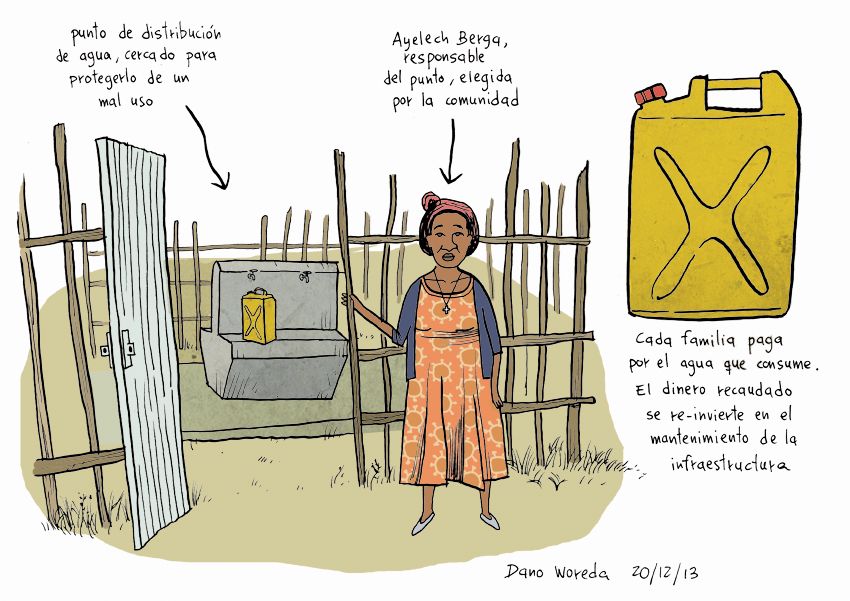 punto de distribución
de agua, cercado para
protegerlo de un
mal uso
Ayelech Berga,
responsable
del punto, elegida
por la comunidad
Cada familia paga
por el agua que consume.
El dinero recaudado
se re-invierte en el
mantenimiento de la
infraestructura
Dano Woreda 20/12/13